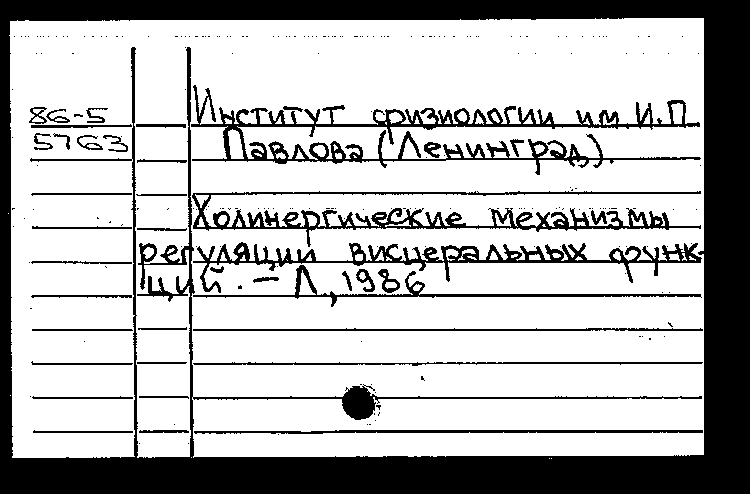 86-5
5763
Институт физиологии им. И.П.
Павлова (Ленинград).
Холинергические механизмы
регуляции висцеральных функ-
ций. – Л., 1986